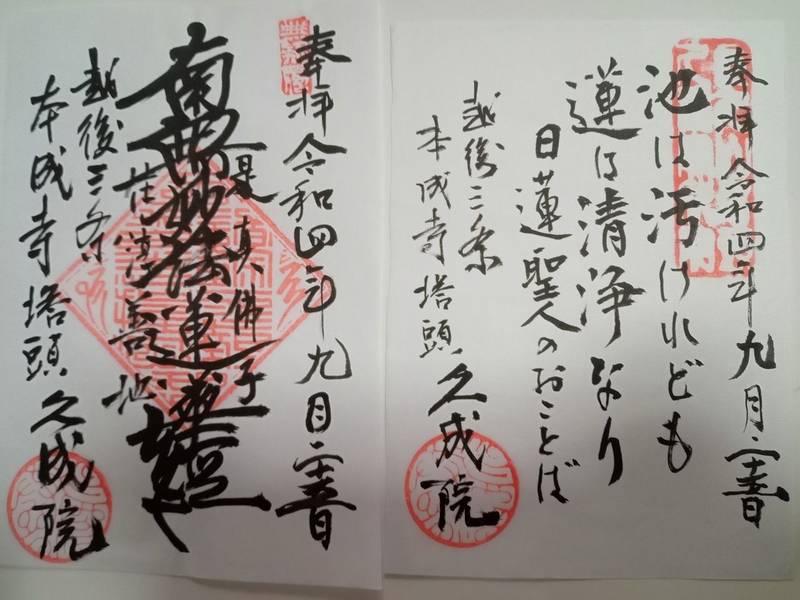 奉拝 令和四年九月二十五日
池は汚けれども
蓮は清浄なり
日蓮聖人のおことば
越後三条
本成寺塔頭 久成院
奉拝 令和四年九月二十五日
是真佛子
南無妙法蓮華経
住淳善地
越後三条
本成寺塔頭 久成院